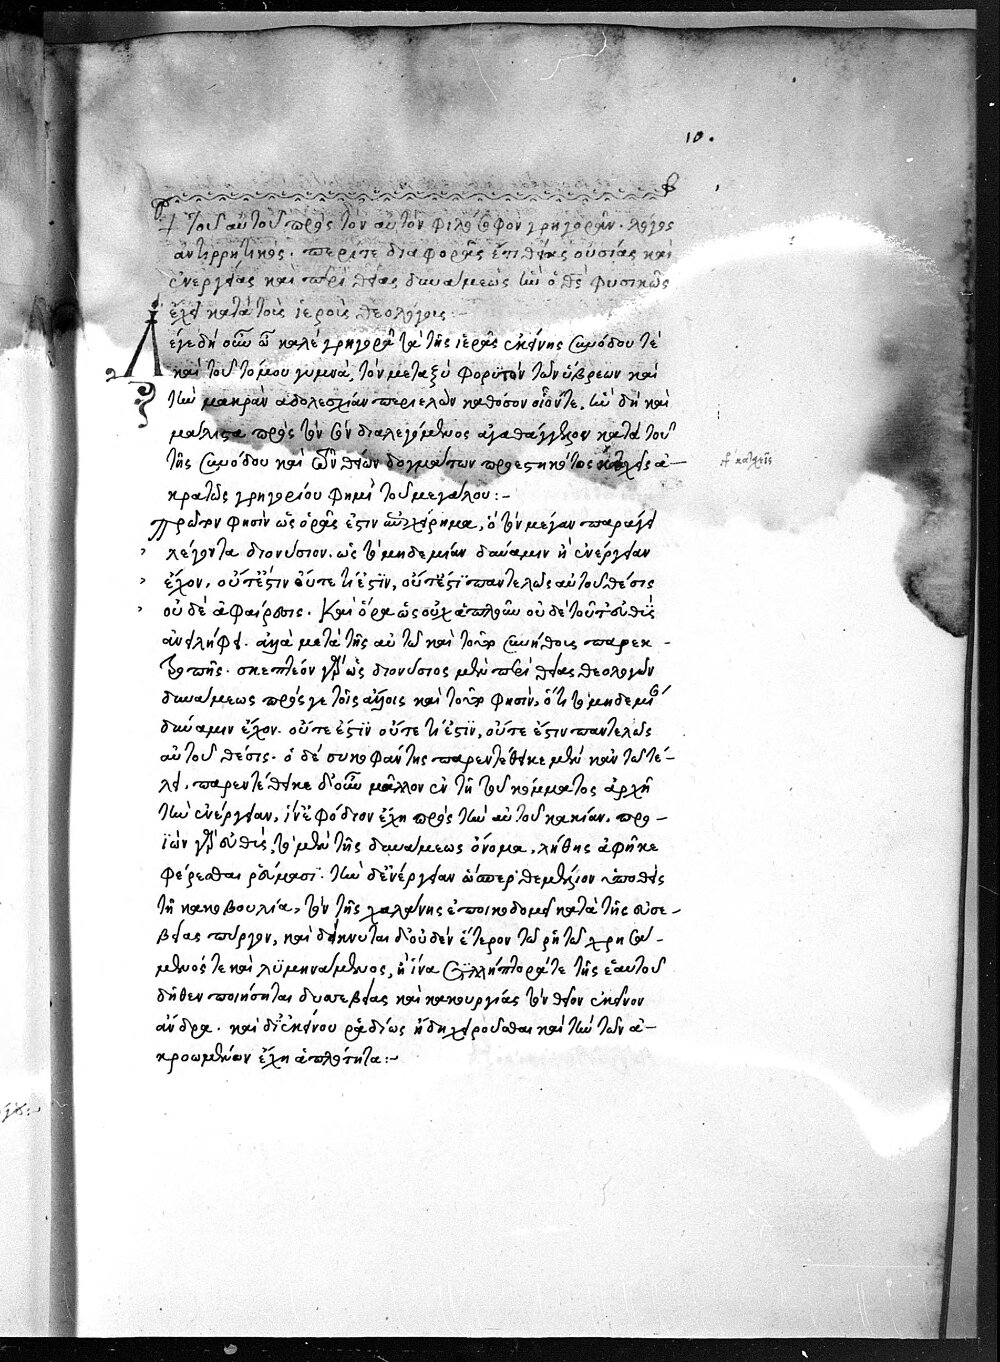 10.
+ Τοῦ αὐτοῦ πρὸς τὸν αὐτὸν φιλόσοφον γρηγορᾶν. λόγος
ἀντιρρητικός. περί τε διαφορᾶς ἐπὶ θείας οὐσίας καὶ
ἐνεργείας καὶ περὶ θείας δυνάμεως ἣν ὁ θεὸς φυσικῶς
ἔχει κατὰ τοὺς ἱεροὺς θεολόγους:-
Ἄγε δὴ οὖν ὦ καλὲ γρηγορᾶ τὰ τῆς ἱερᾶς ἐκείνης συνόδου τέ
καὶ τοῦ τόμου γυμνὰ, τὸν μεταξὺ φορυτὸν τῶν ὕβρεων καὶ
τὴν μακρὰν ἀδολεσχίαν περιελὼν καθόσον οἷόν τε, ἣν δὴ καὶ
μάλιστα πρὸς τὸν σὸν διαλεγόμενος ἀγαθάγγελον κατὰ τοῦ
τῆς συνόδου καὶ τῶν θείων δογμάτων προεστηκότος κατέχεις ἀ-
+ κατέχεεις
κρατῶς γρηγορίου φημὶ τοῦ μεγάλου:-
Πρῶτον φησὶν ὡς ὁρᾶς ἐστιν ἐπιχείρημα, ὃ τὸν μέγαν παράγει
λέγοντα διονύσιον. ὡς τὸ μηδεμίαν δύναμιν ἢ ἐνέργειαν
ἔχον, οὔτ' ἔστιν οὔτε τί ἐστϊν, οὔτ' ἔστϊ παντελῶς αὐτοῦ θέσις
οὐδὲ ἀφαίρεσις. Καὶ ὅρα ὡς οὐχ ἁπλοῦν οὐδὲ τοῦτ' εὐθὺς
ἀντιληφει. ἀλλὰ μετὰ τῆς αὐτῶ καὶ τοῦτο συνήθους παρεκ-
τροπῆς. σκεπτέον γὰρ ὡς διονύσιος μὲν περὶ θείας θεολογῶν
δυνάμεως πρός γε τοῖς ἄλλοις καὶ τοῦτο φησὶν, ὅτι τὸ μηδεμίαν
δύναμιν ἔχον. οὔτε ἐστϊν οὔτε τί ἐστϊν, οὔτε ἔστιν παντελῶς
αὐτοῦ θέσις. ὁ δὲ συκοφάντης παρεντέθεικε μὲν κἂν τῶ τέ-
λει. παρεντέθεικε δ' οὖν μᾶλλον ἐν τῆ τοῦ κόμματος ἀρχῆ
τὴν ἐνέργειαν, ἵν' ἐφόδιον ἔχη πρὸς τὴν αὐτοῦ κακίαν. προ-
ϊὼν γὰρ εὐθὺς, τὸ μὲν τῆς δυνάμεως ὄνομα, λήθης ἀφῆκε
φέρεσθαι ῥεύμασϊ. τὴν δ' ἐνέργειαν ὥσπερ θεμέλιον ὑποθεὶς
τῆ κακοβουλία, τὸν τῆς χαλάνης ἐποικοδομεῖ κατὰ τῆς εὐσε-
βείας πύργον, καὶ δείκνυται δι' οὐδὲν ἕτερον τῶ ῥητῶ χρησά-
μενός τε καὶ λϋμηνάμενος, ἢ ἵνα συλλήπτορά τε τῆς ἑαυτοῦ
δῆθεν ποιήσηται δυσσεβείας καὶ κακουργίας τὸν θεῖον ἐκεῖνον
ἄνδρα. καὶ δι' ἐκείνου ῥαδίως ἤδη χειροῦσθαι καὶ τὴν τῶν ἀ-
κροωμένων ἔχη ἁπλότητα:-